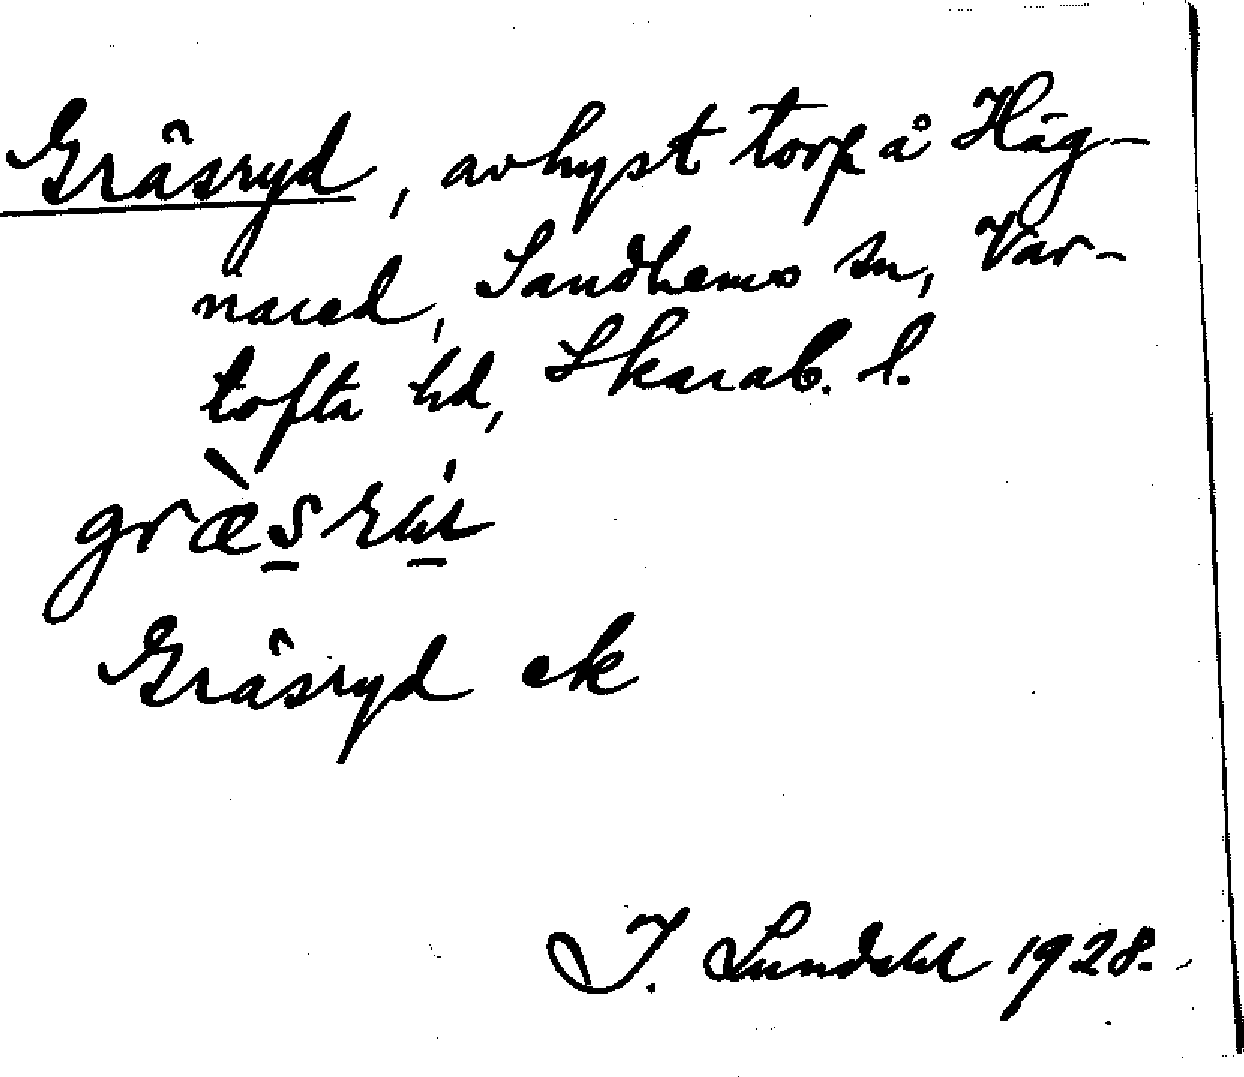 Gräsryd, avhyst torp å Häg-
nared, Sandhems sn, Var-
tofta hd, Skarab. l.
Gräsryd ek
I. Lundahl 1928.